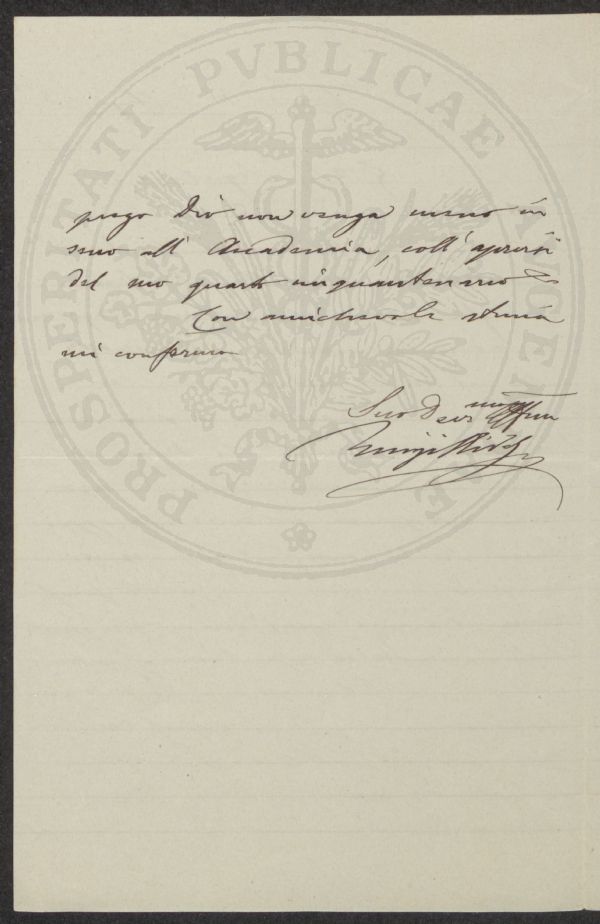 PROSPERITATI PVBLICAE
prego Dio non venga meno in
seno all' Accademia, coll' aprirsi
del suo quarto cinquantenario
Con amichevole stima
mi confermo
Suo D